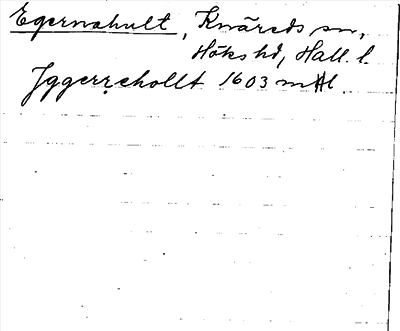 Egernahult, Knäreds sn,
Höks hd, Hall. l.
Jggerrehollt 1603 mHl.